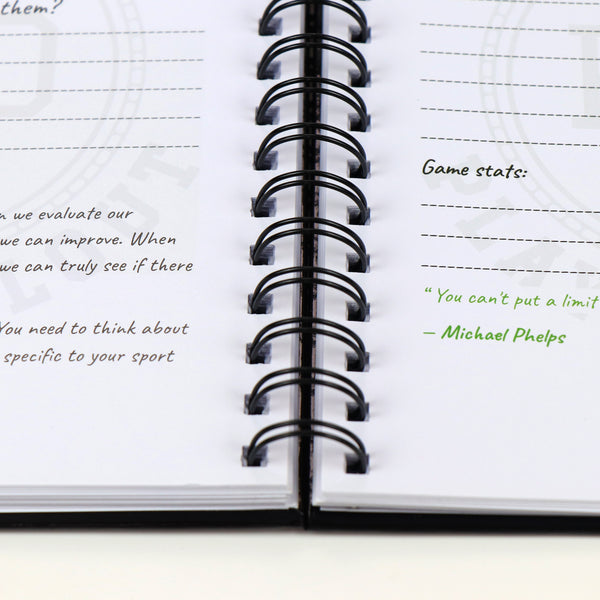 them?
n we evaluate our
we can improve. When
we can truly see if there
You need to think about
specific to your sport
LOUT
Game stats:
PLAY
“You can't put a limit
– Michael Phelps